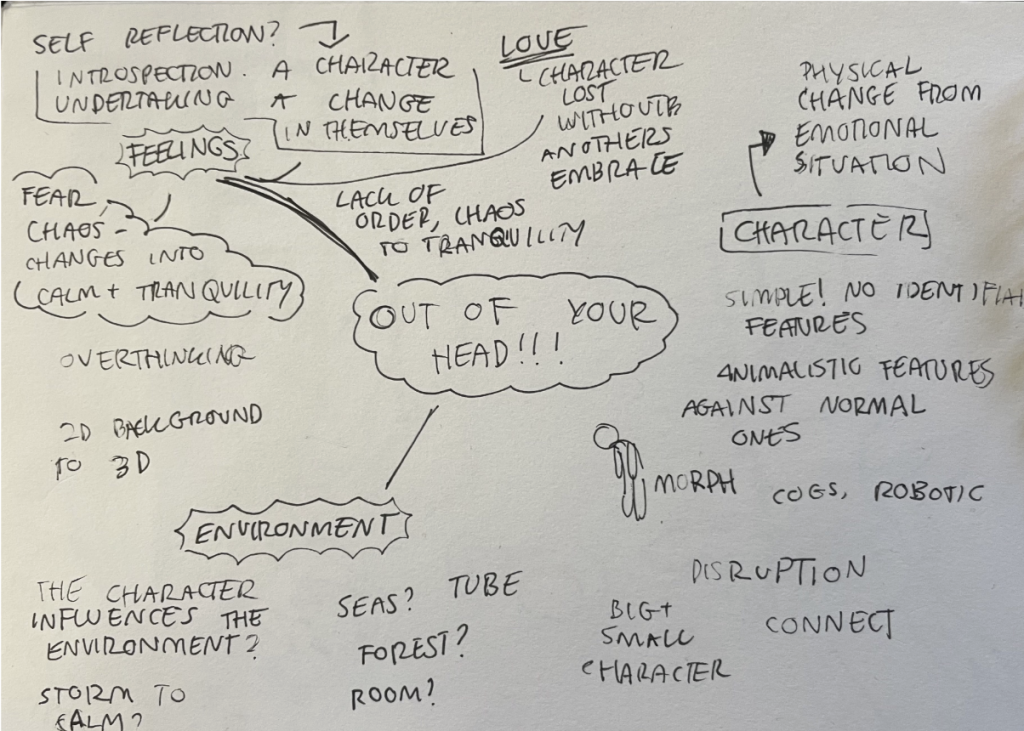 SELF REFLECTION?
INTROSPECTION. A CHARACTER
UNDERTAKING A CHANGE
IN THEMSELVES
FEELINGS
FEAR
CHAOS -
CHANGES INTO
CALM + TRANQUILITY
OVERTHINKING
2D BACKGROUND
TO 3D
LOVE
CHARACTER
LOST
WITHOUT
ANOTHERS
EMBRACE
LACK OF
ORDER, CHAOS
TO TRANQUILITY
OUT OF YOUR
HEAD!!!
PHYSICAL
CHANGE FROM
EMOTIONAL
SITUATION
CHARACTER
SIMPLE! NO
FEATURES
ANIMALISTIC FEATURES
AGAINST NORMAL
ONES
MORPH
COGS, ROBOTIC
DISRUPTION
BIG +
SMALL
CHARACTER
CONNECT
ENVIRONMENT
THE CHARACTER
INFLUENCES THE
ENVIRONMENT?
STORM TO
CALM?
SEAS? TUBE
FOREST?
ROOM?